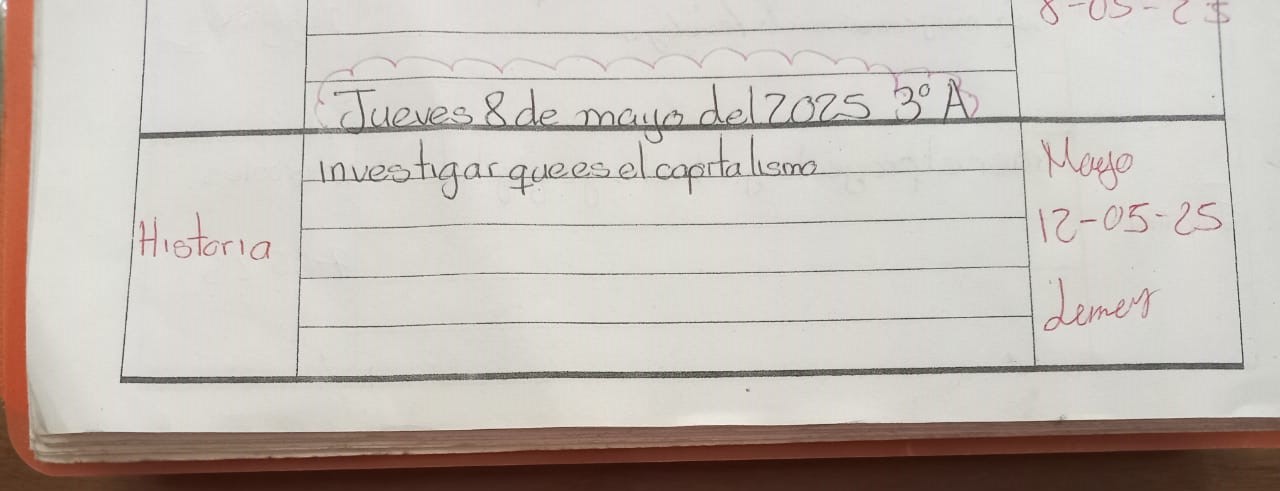 8-05-25
Jueves 8 de mayo del 2025 3° A
investigar que es el capitalismo
Historia
Mayo
12-05-25